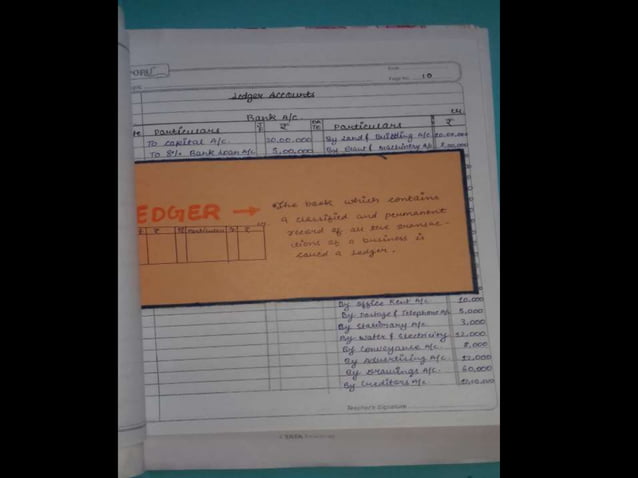 Page No. 10
Ledger Accounts
Bank A/c
Cr
Particulars ₹ Particulars ₹
To Capital A/c. 20,00,000 By Land & Building A/c 20,00,000
To 8% Bank Loan A/c 5,00,000 By Plant & Machinery A/c
EDGER →
The book which contains
a classified and permanent
record of all the transac-
tions of a business is
called a Ledger.
₹ Particulars ₹
By Office Rent A/c 10,000
By Postage & Telephone A/c 5,000
By Stationary A/c 3,000
By Water & Electricity 12,000
By Conveyance A/c. 8,000
By Advertising A/c 12,000
By Drawings A/c. 60,000
By Creditors A/c
Teacher's Signature